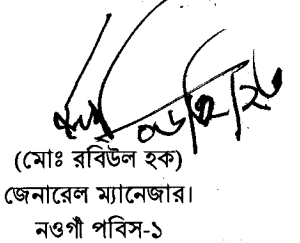 (মোঃ রবিউল হক)
জেনারেল ম্যানেজার।
নওগাঁ পবিস-১